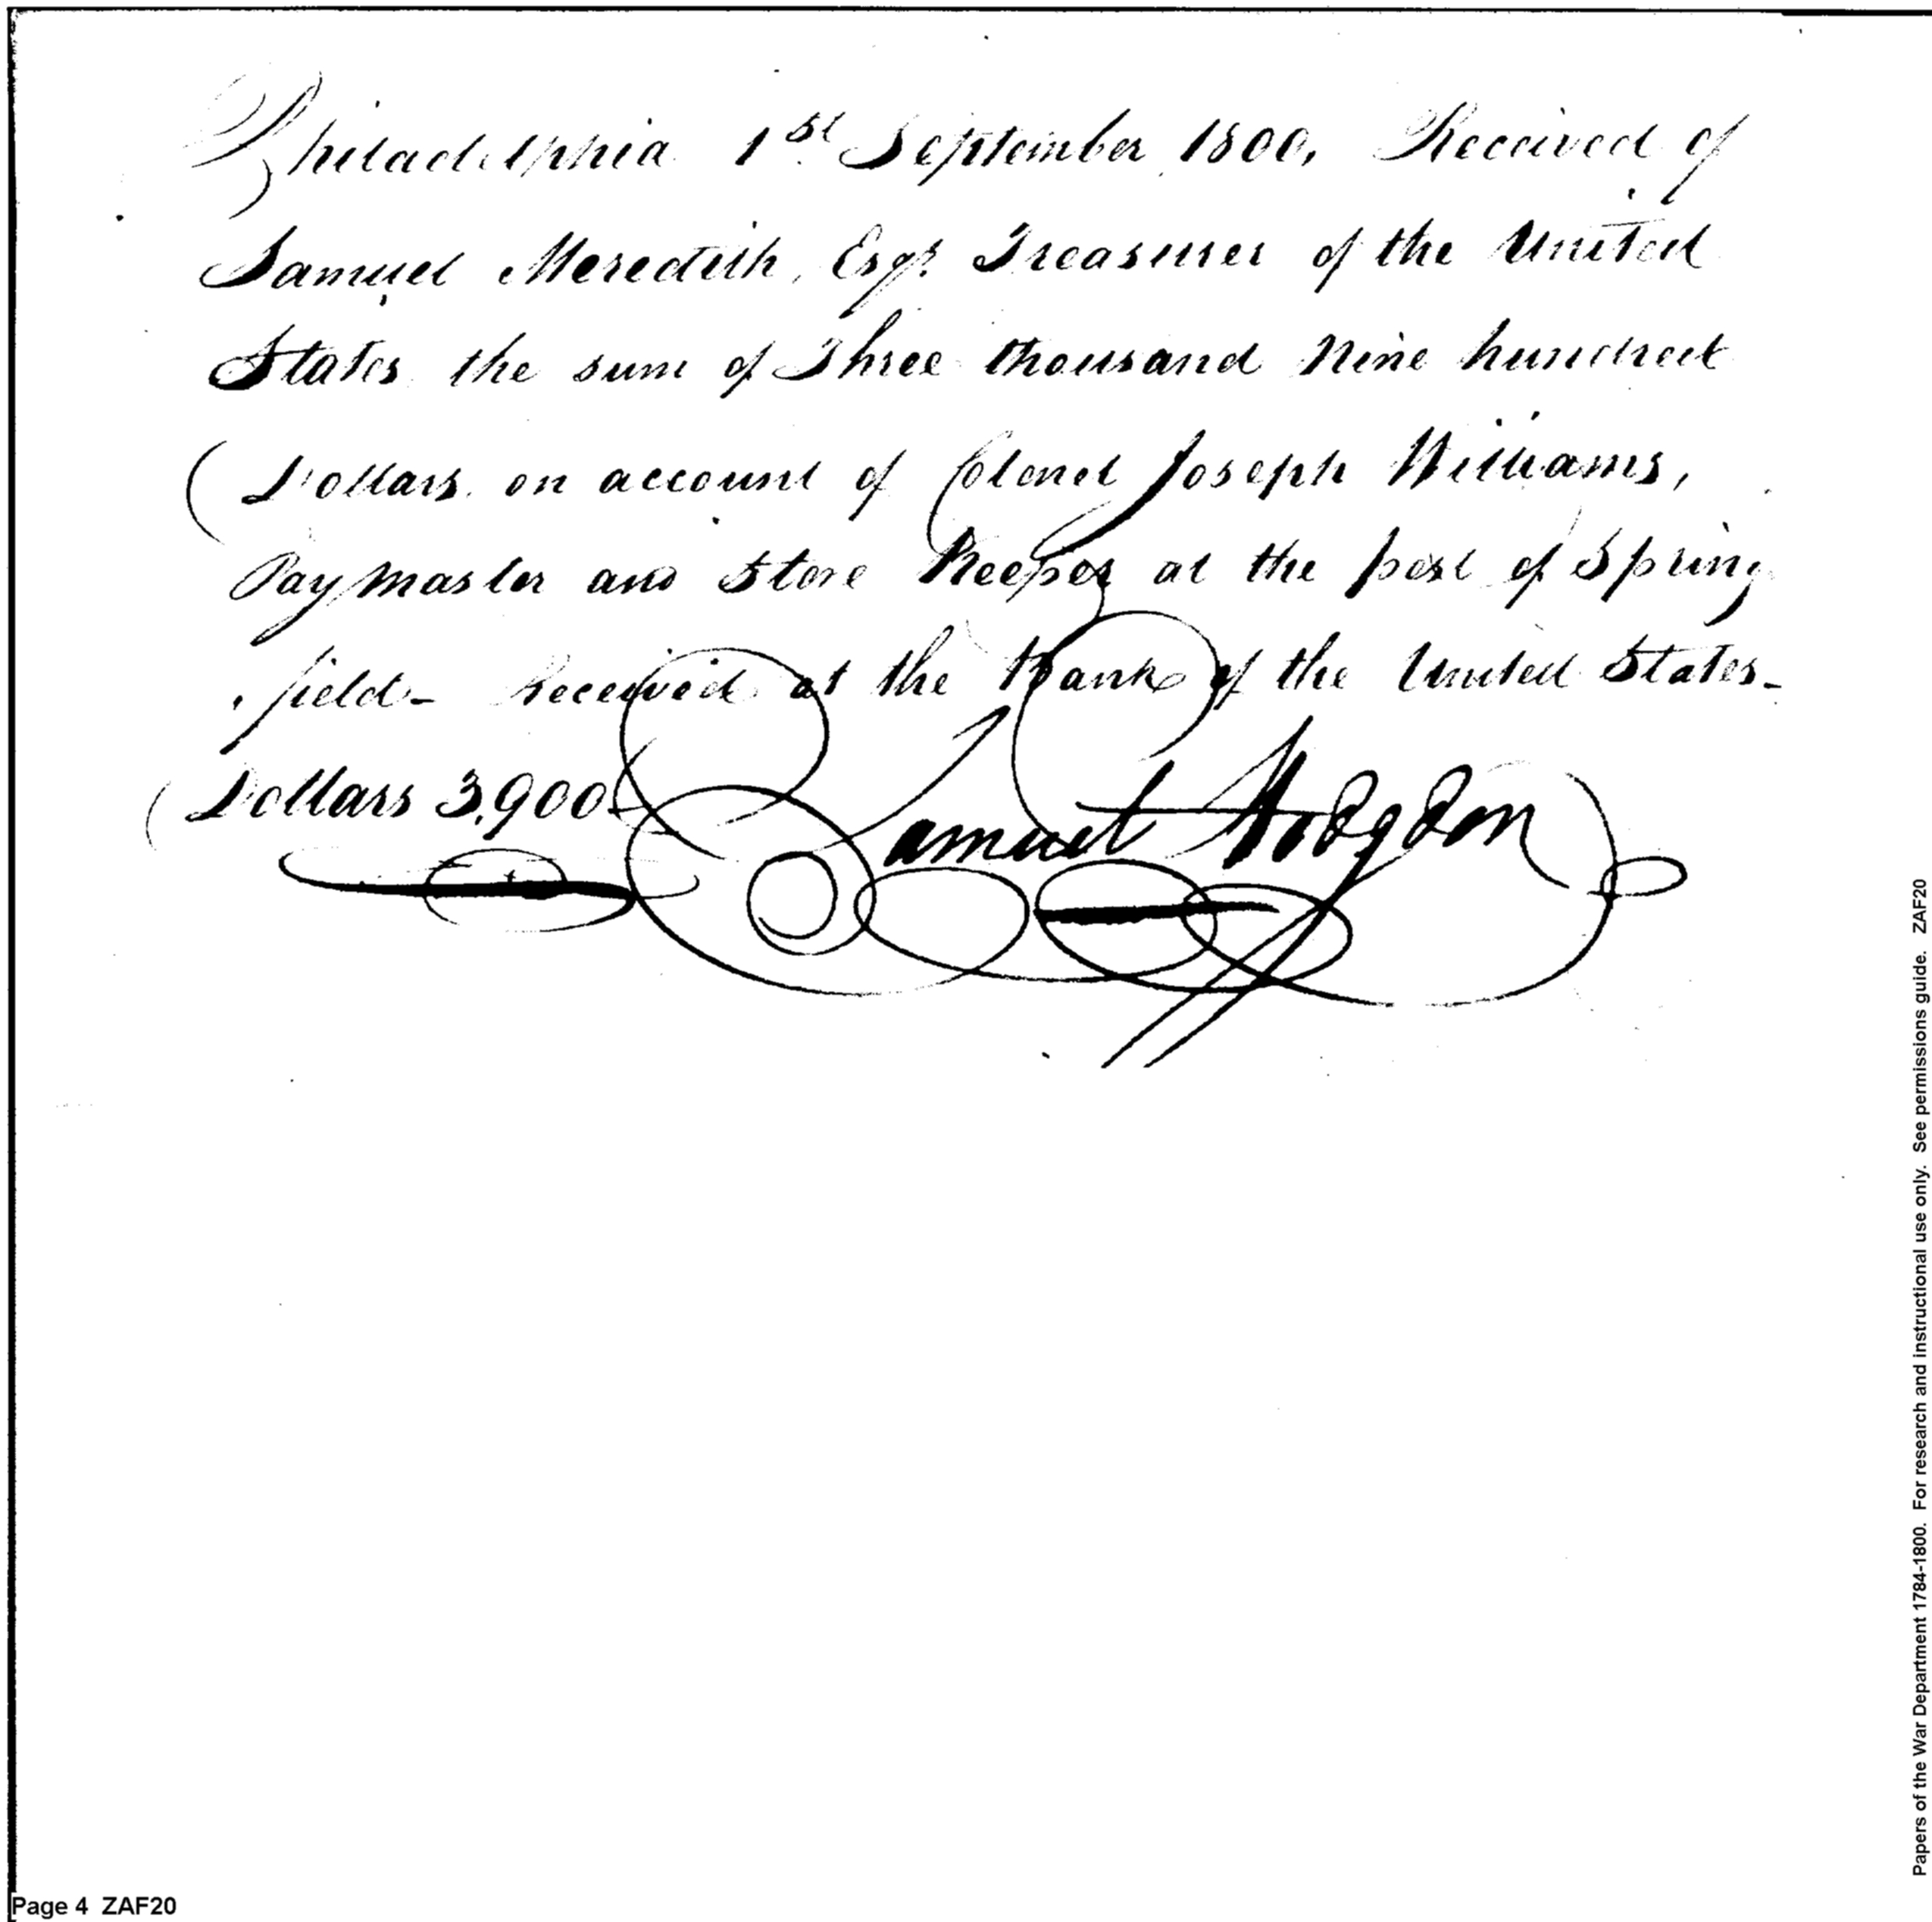 Philadelphia 1st September 1800, Received of
Samuel Meredith, Esqr. Treasurer of the United
States the sum of Three thousand Nine hundred
Dollars on account of Colonel Joseph Williams,
Paymaster and Store Keeper at the post of Spring
field - Received at the Bank of the United States -
Dollars 3,900
Samuel Hodgdon
Page 4 ZAF20
Papers of the War Department 1784-1800. For research and instructional use only. See permissions guide. ZAF20